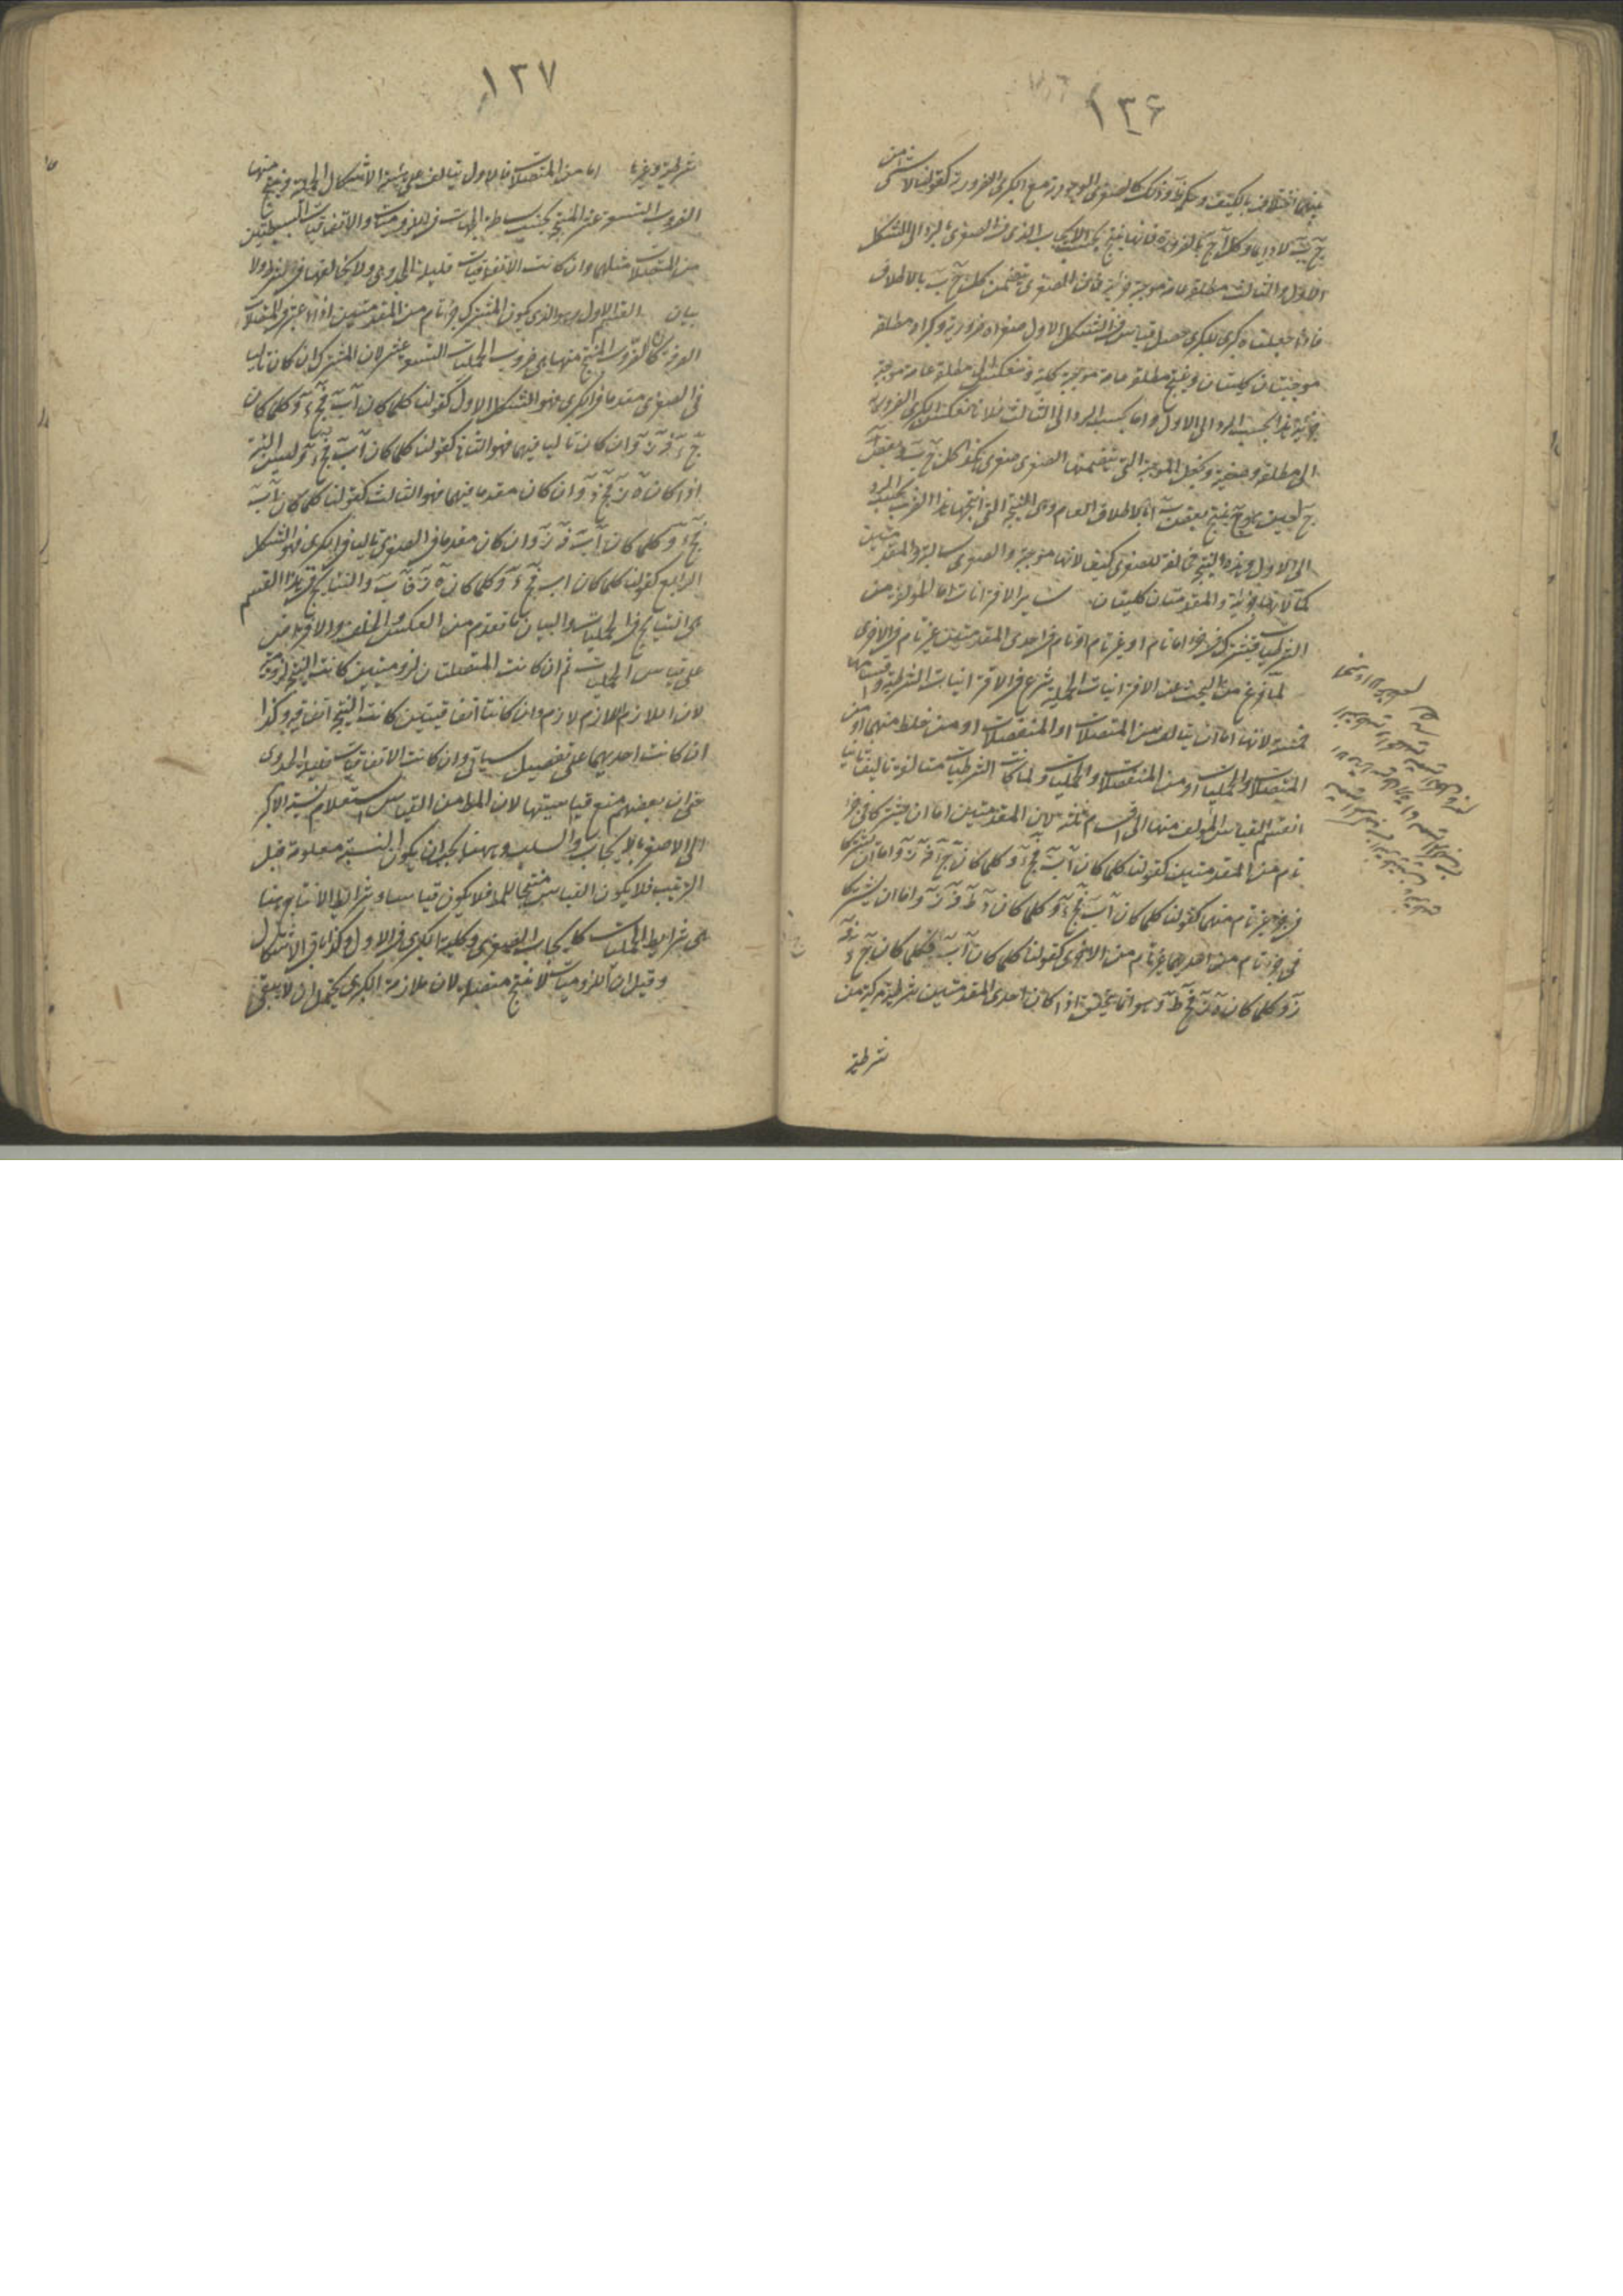 ١٣۶
بينهما اختلاف بالكيف وذلك كالصغرى الوجودية مع الكبرى الضرورية كقولنا لا شئ من
ج ب لا دايما وكل ا ج بالضرورة فانها ينتج بحسب الايجاب الذى فى الصغرى بالرد الى الشكل
الاول والثالث مطلقة عامة موجبة جزئية فان الصغرى تتضمن كل ج ب بالاطلاق
فاذا جعلت كبرى للكبرى حصل قياس فى الشكل الاول صغراه ضرورية وكبراه مطلقة
موجبتان كليتان وينتج مطلقة عامة موجبة كلية وتنعكس الى مطلقة عامة موجبة
جزئية هذا بحسب الرد الى الاول واما بحسب الرد الى الثالث فلانا نعكس الكبرى الضرورية
الى مطلقة وصفية ونجعل الموجبة التى تتضمنها الصغرى صغرى هكذا كل ج ب وبعض
ج ا حين هو ج ينتج بعض ب ا بالاطلاق العام وهى النتيجة التى انتجها هذا الضرب بحسب الرد
الى الاول وهذه النتيجة مخالفة للصغرى كيف لانها موجبة والصغرى سالبة وللمقدمتين
كما لانها جزئية والمقدمتان كليتان ساير الاقترانات اما المؤلفة من
الشرطيات فيشترك فى جزء اما تام او غير تام او تام فى احدى المقدمتين غير تام فى الاخرى
لما فرغ من البحث عن الاقترانيات الحملية شرع فى الاقترانيات الشرطية واقسامها
خمسة لانها اما ان يتالف من المتصلات او المنفصلات او من خلط منهما او من
المتصلات والحمليات او من المنفصلات والحمليات ولما كانت الشرطيات متالفة تاليفا ثانيا
انقسم القياس المولف منها الى اقسام ثلثة لان المقدمتين اما ان يشتركا فى جزء
تام من المقدمتين كقولنا كلما كان ا ب فج د وكلما كان ج د فه ز واما ان يشتركا
فى جزء غير تام منهما كقولنا كلما كان ا ب فج د وكلما كان د ط فه ز واما ان يشتركا
فى جزء تام من احديهما غير تام من الاخرى كقولنا كلما كان ا ب فكلما كان ج د فه
ز وكلما كان ه ز فح ط وهو انما يتحقق اذا كان احدى المقدمتين شرطية مركبة من
شرطية
١٣٧
شرطية وغيرها اما من المتصلات فالاول يتالف على هيئة الاشكال الحملية وينتج منها
الضروب التسعة عشر المنتجة بحسب بساطة الجهات فى اللزوميات والاتفاقيات البسيطتين
من المتصلات مثلهما وان كانت الاتفاقيات قليلة الجدوى ولا يخالفها فى شرط ولا
بيان القسم الاول وهو الذى يكون المشترك جزء تام من المقدمتين اذا اعتبر فى المتصلات
الصرفة كان الضروب المنتجة منها هى ضروب الحمليات التسعة عشر لان المشترك ان كان تاليا
فى الصغرى مقدما فى الكبرى فهو الشكل الاول كقولنا كلما كان ا ب فج د وكلما كان
ج د فه ز وان كان تاليا فيهما فهو الثانى كقولنا كلما كان ا ب فج د وليس البتة
اذا كان ه ز فج د وان كان مقدما فيهما فهو الثالث كقولنا كلما كان ا ب
فج د وكلما كان ا ب فه ز وان كان مقدما فى الصغرى تاليا فى الكبرى فهو الشكل
الرابع كقولنا كلما كان ا ب فج د وكلما كان ه ز فا ب والنتايج فى هذا القسم
هى النتايج فى الحمليات والبيان ما تقدم من العكس والخلف والافتراض
على قياس الحمليات ثم ان كانت المتصلتان لزوميتين كانت النتيجة لزومية
لان اللازم اللازم لازم وان كانتا اتفاقيتين كانت النتيجة اتفاقية وكذا
ان كانت احديهما على تفصيل سياتى وان كانت الاتفاقيات قليلة الجدوى
حتى ان بعضهم منع قياسيتها لان المط من القياس استعلام نسبة الاكبر
الى الاصغر بالايجاب والسلب وههنا يجب ان يكون النسبة معلومة قبل
التركيب فلا يكون القياس منتجا للمط فلا يكون قياسا وشرايط الانتاج هنا
هى شرايط الحمليات كايجاب الصغرى وكلية الكبرى فى الاول وكذا باقى الاشكال
وقيل ان اللزوميات لا ينتج متصلة لان ملازمة الكبرى يحتمل ان لا يبقى